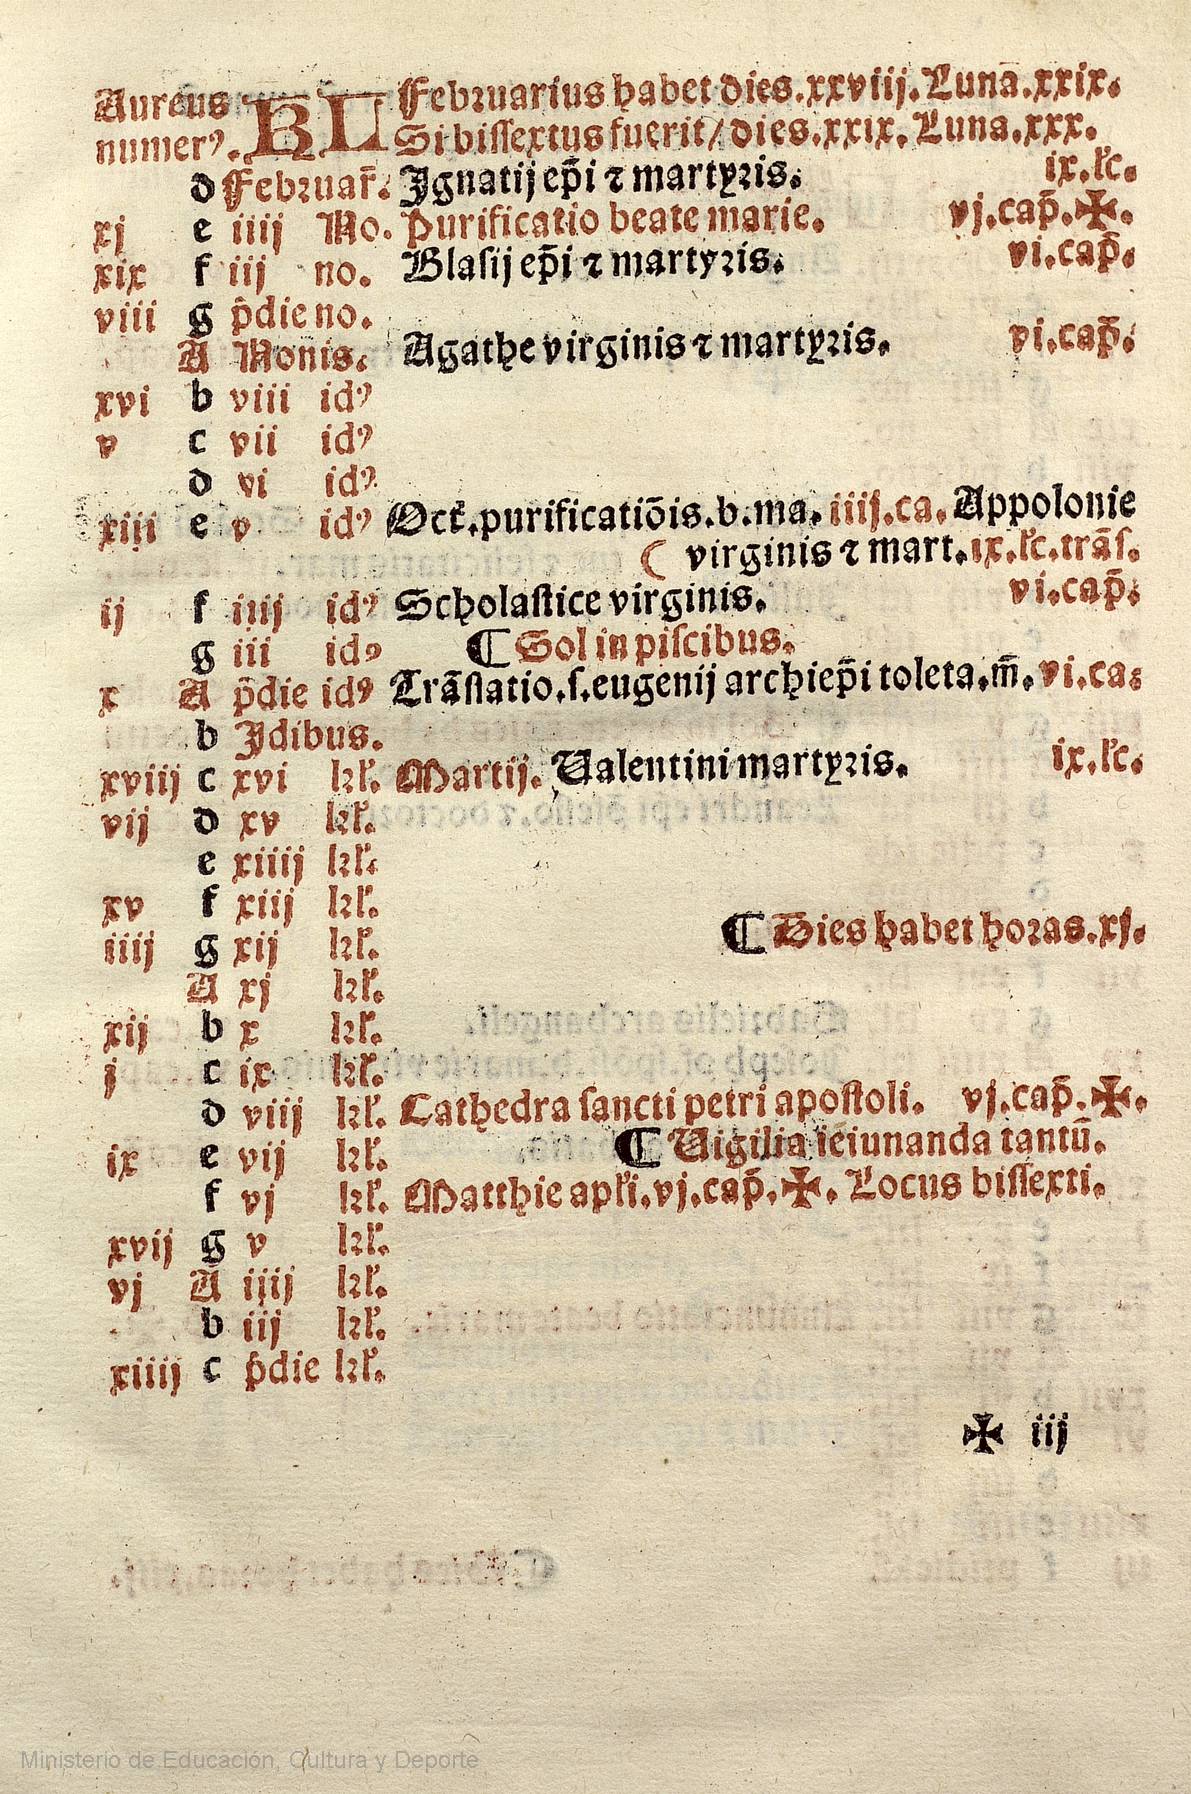 Aureus KL Februarius habet dies.xxviij.Luna.xxix.
numerꝰ. Si bissextus fuerit/dies.xxix.Luna.xxx.
d Februar̃. Ignatij ep̃i ⁊ martyris. ix.lc̃.
xj e iiij No. Purificatio beate marie. vj.cap̃.✠.
xix f iij no. Blasij ep̃i ⁊ martyris. vi.cap̃.
viii g p̃die no.
A Nonis. Agathe virginis ⁊ martyris. vi.cap̃.
xvi b viii idꝰ
v c vii idꝰ
d vi idꝰ
xiii e v idꝰ Oct̃.purificatiõis.b.ma.iiij.ca.Appolonie
( virginis ⁊ mart.ix.lc̃.trãs.
ij f iiij idꝰ Scholastice virginis. vi.cap̃.
g iii idꝰ ¶ Sol in piscibus.
x A p̃die idꝰ Trãslatio.s.eugenij archiep̃i toleta.m̃.vi.ca.
b Idibus.
xviij c xvi kl̃. Martij. Valentini martyris. ix.lc̃.
vij d xv kl̃.
e xiiij kl̃.
xv f xiij kl̃.
iiij g xij kl̃. ¶ Dies habet horas.xj.
A xj kl̃.
xij b x kl̃.
j c ix kl̃.
d viij kl̃. Cathedra sancti petri apostoli. vj.cap̃.✠.
ix e vij kl̃. ¶ Vigilia ieiunanda tantũ.
f vj kl̃. Matthie apl̃i.vj.cap̃.✠. Locus bissexti.
xvij g v kl̃.
vj A iiij kl̃.
b iij kl̃.
xiiij c p̃die kl̃.
✠ iij
Ministerio de Educación, Cultura y Deporte